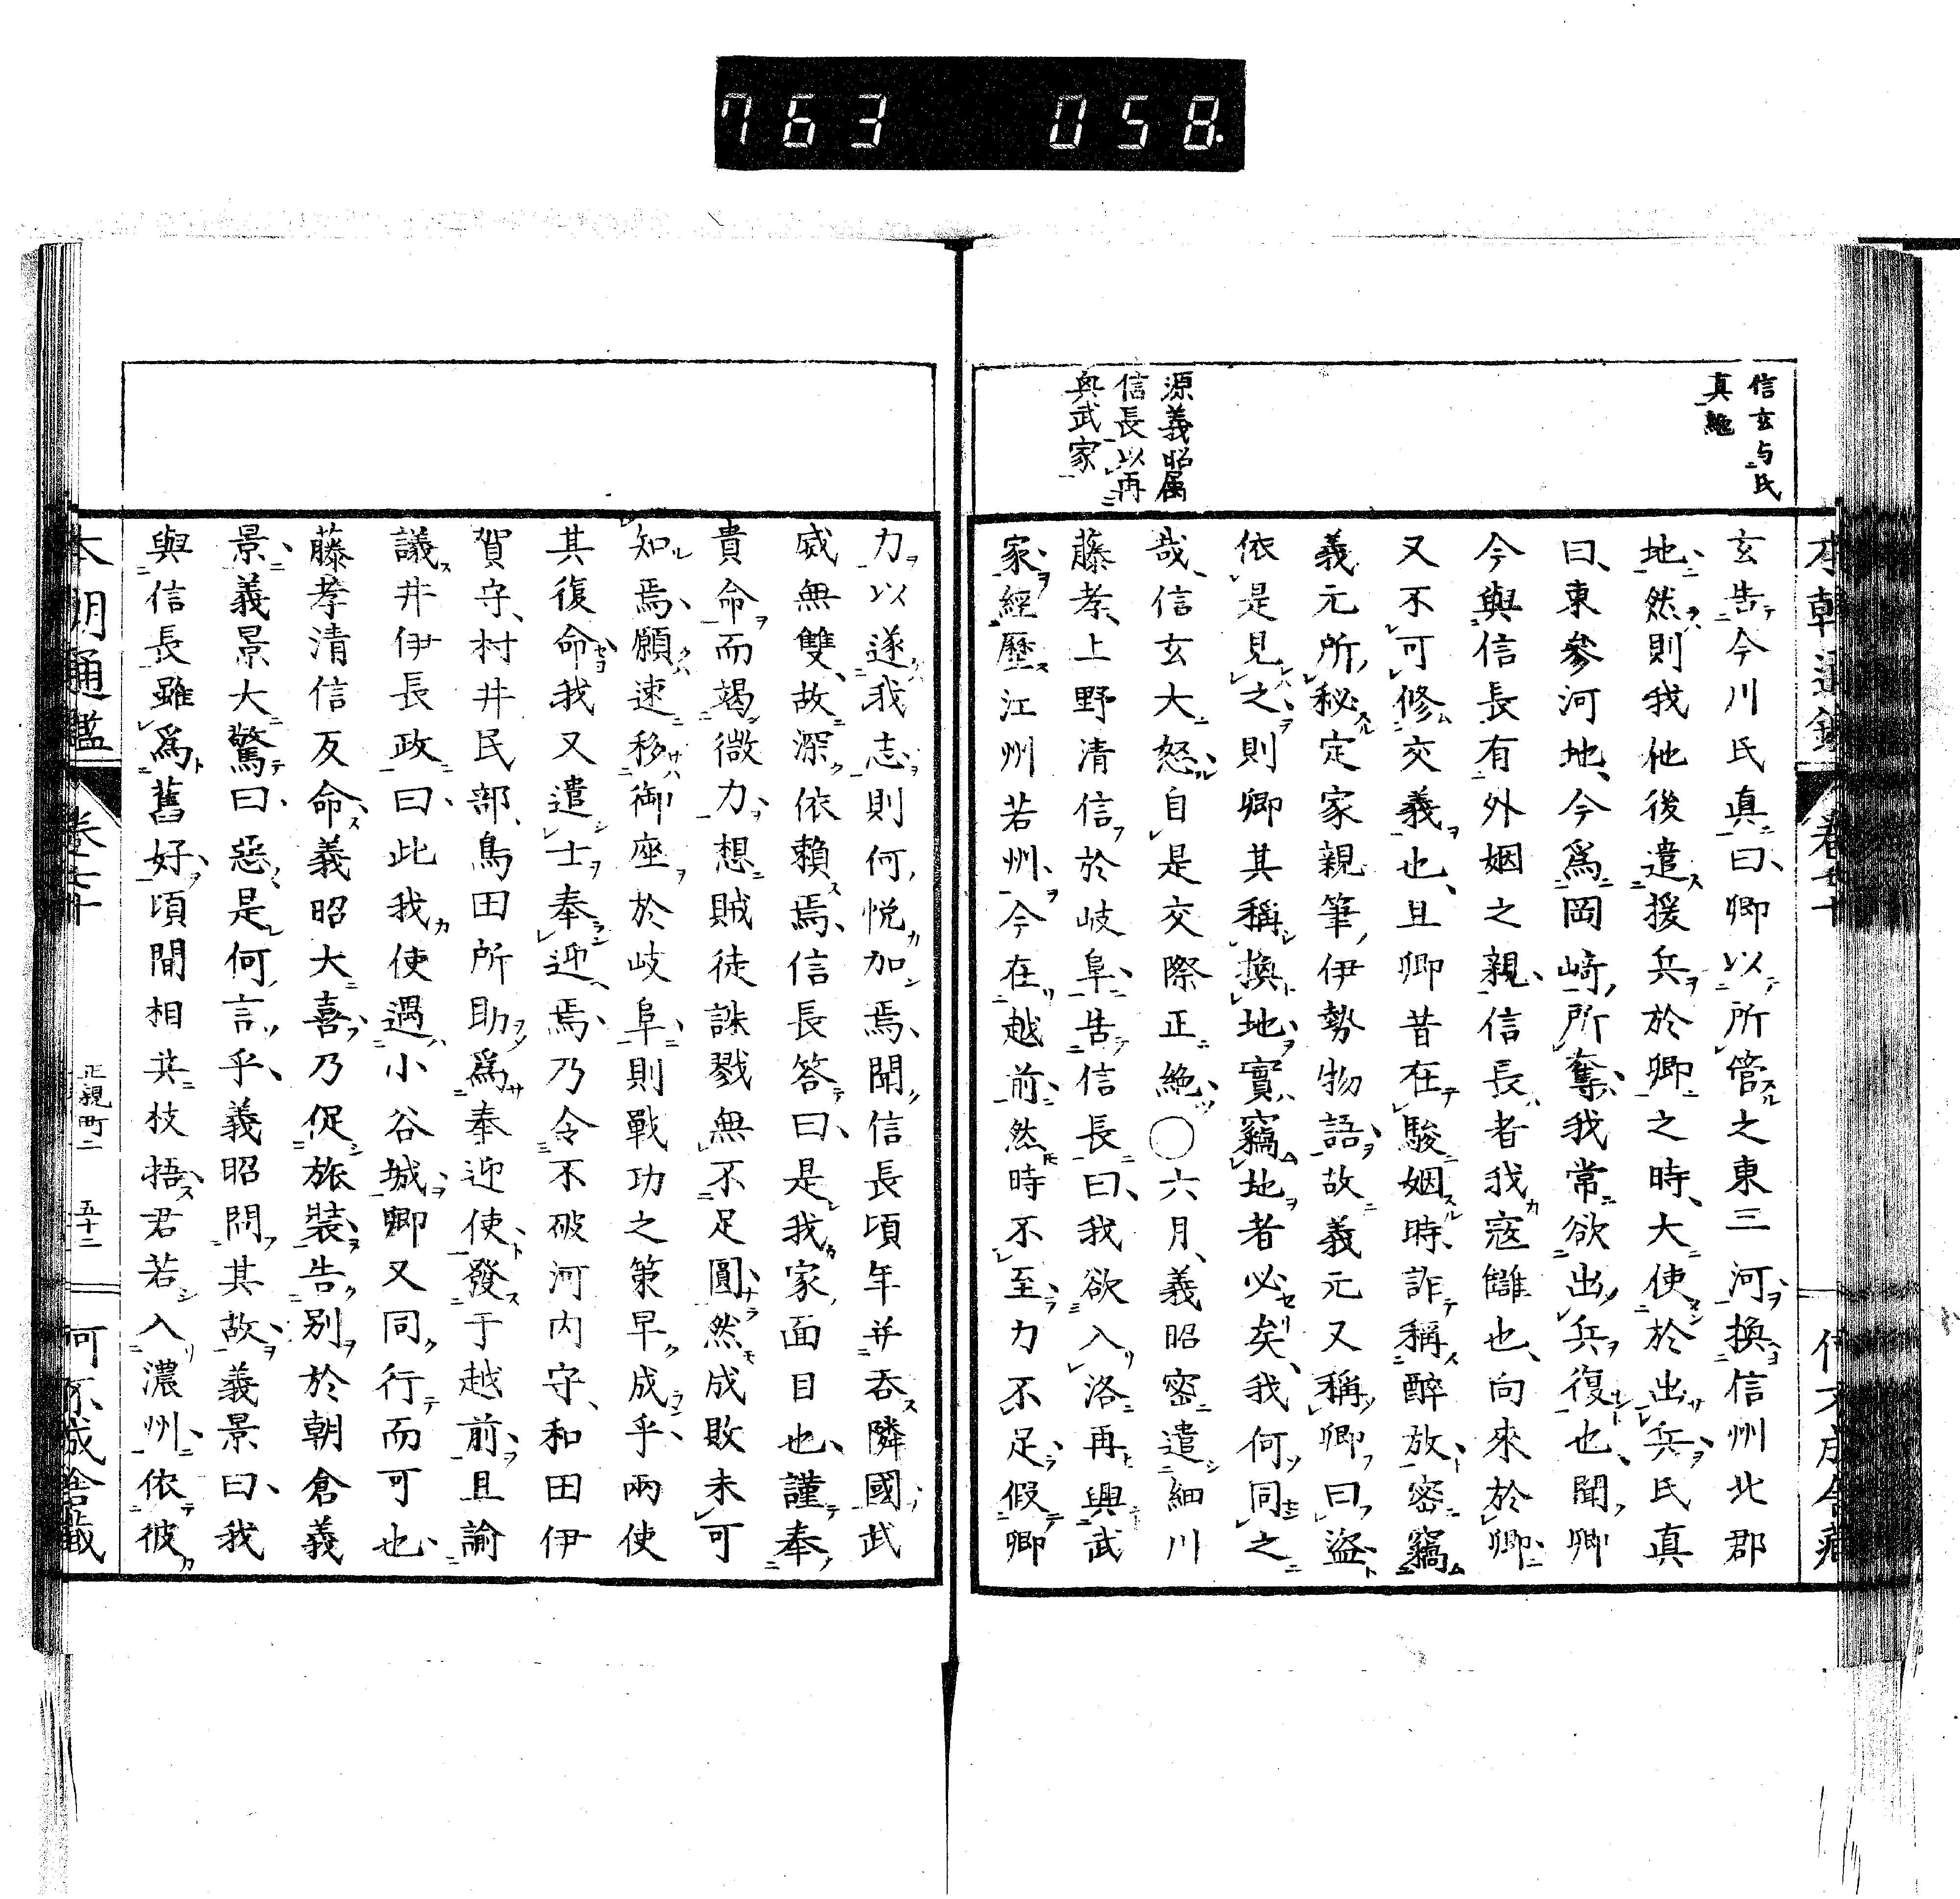 763 058.
信玄与氏
真絶
源義昭属
信長以再
興武家
玄告今川氏真曰卿以所管之東三河換信州北郡
地然則我他後遣援兵於卿之時大使於出兵氏真
曰東參河地今爲岡﨑所奪我常欲出兵復也聞卿
今與信長有外姻之親信長者我寇讎也向來於卿
又不可修交義也且卿昔在駿姻時詐稱醉放密竊
義元所秘定家親筆伊勢物語故義元又稱卿曰盜
依是見之則卿其稱換地實竊地者必矣我何同之
哉信玄大怒自是交際正絶○六月義昭密遣細川
藤孝上野清信於岐阜告信長曰我欲入洛再興武
家經歷江州若州今在越前然時不至力不足假卿
力以遂我志則何悅加焉聞信長頃年并吞隣國武
威無雙故深依賴焉信長答曰是我家面目也謹奉
貴命而竭微力想賊徒誅戮無不足圓然成敗未可
知焉願速移御座於岐阜則戰功之策早成乎兩使
其復命我又遣士奉迎焉乃令不破河内守和田伊
賀守村井民部鳥田所助爲奉迎使發于越前且諭
議井伊長政曰此我使遇小谷城卿又同行而可也
藤孝清信反命義昭大喜乃促旅裝告別於朝倉義
景義景大驚曰惡是何言乎義昭問其故義景曰我
與信長雖爲舊好頃間相共枝捂君若入濃州依彼
本朝通鑑
卷七十
正親町二
五十二